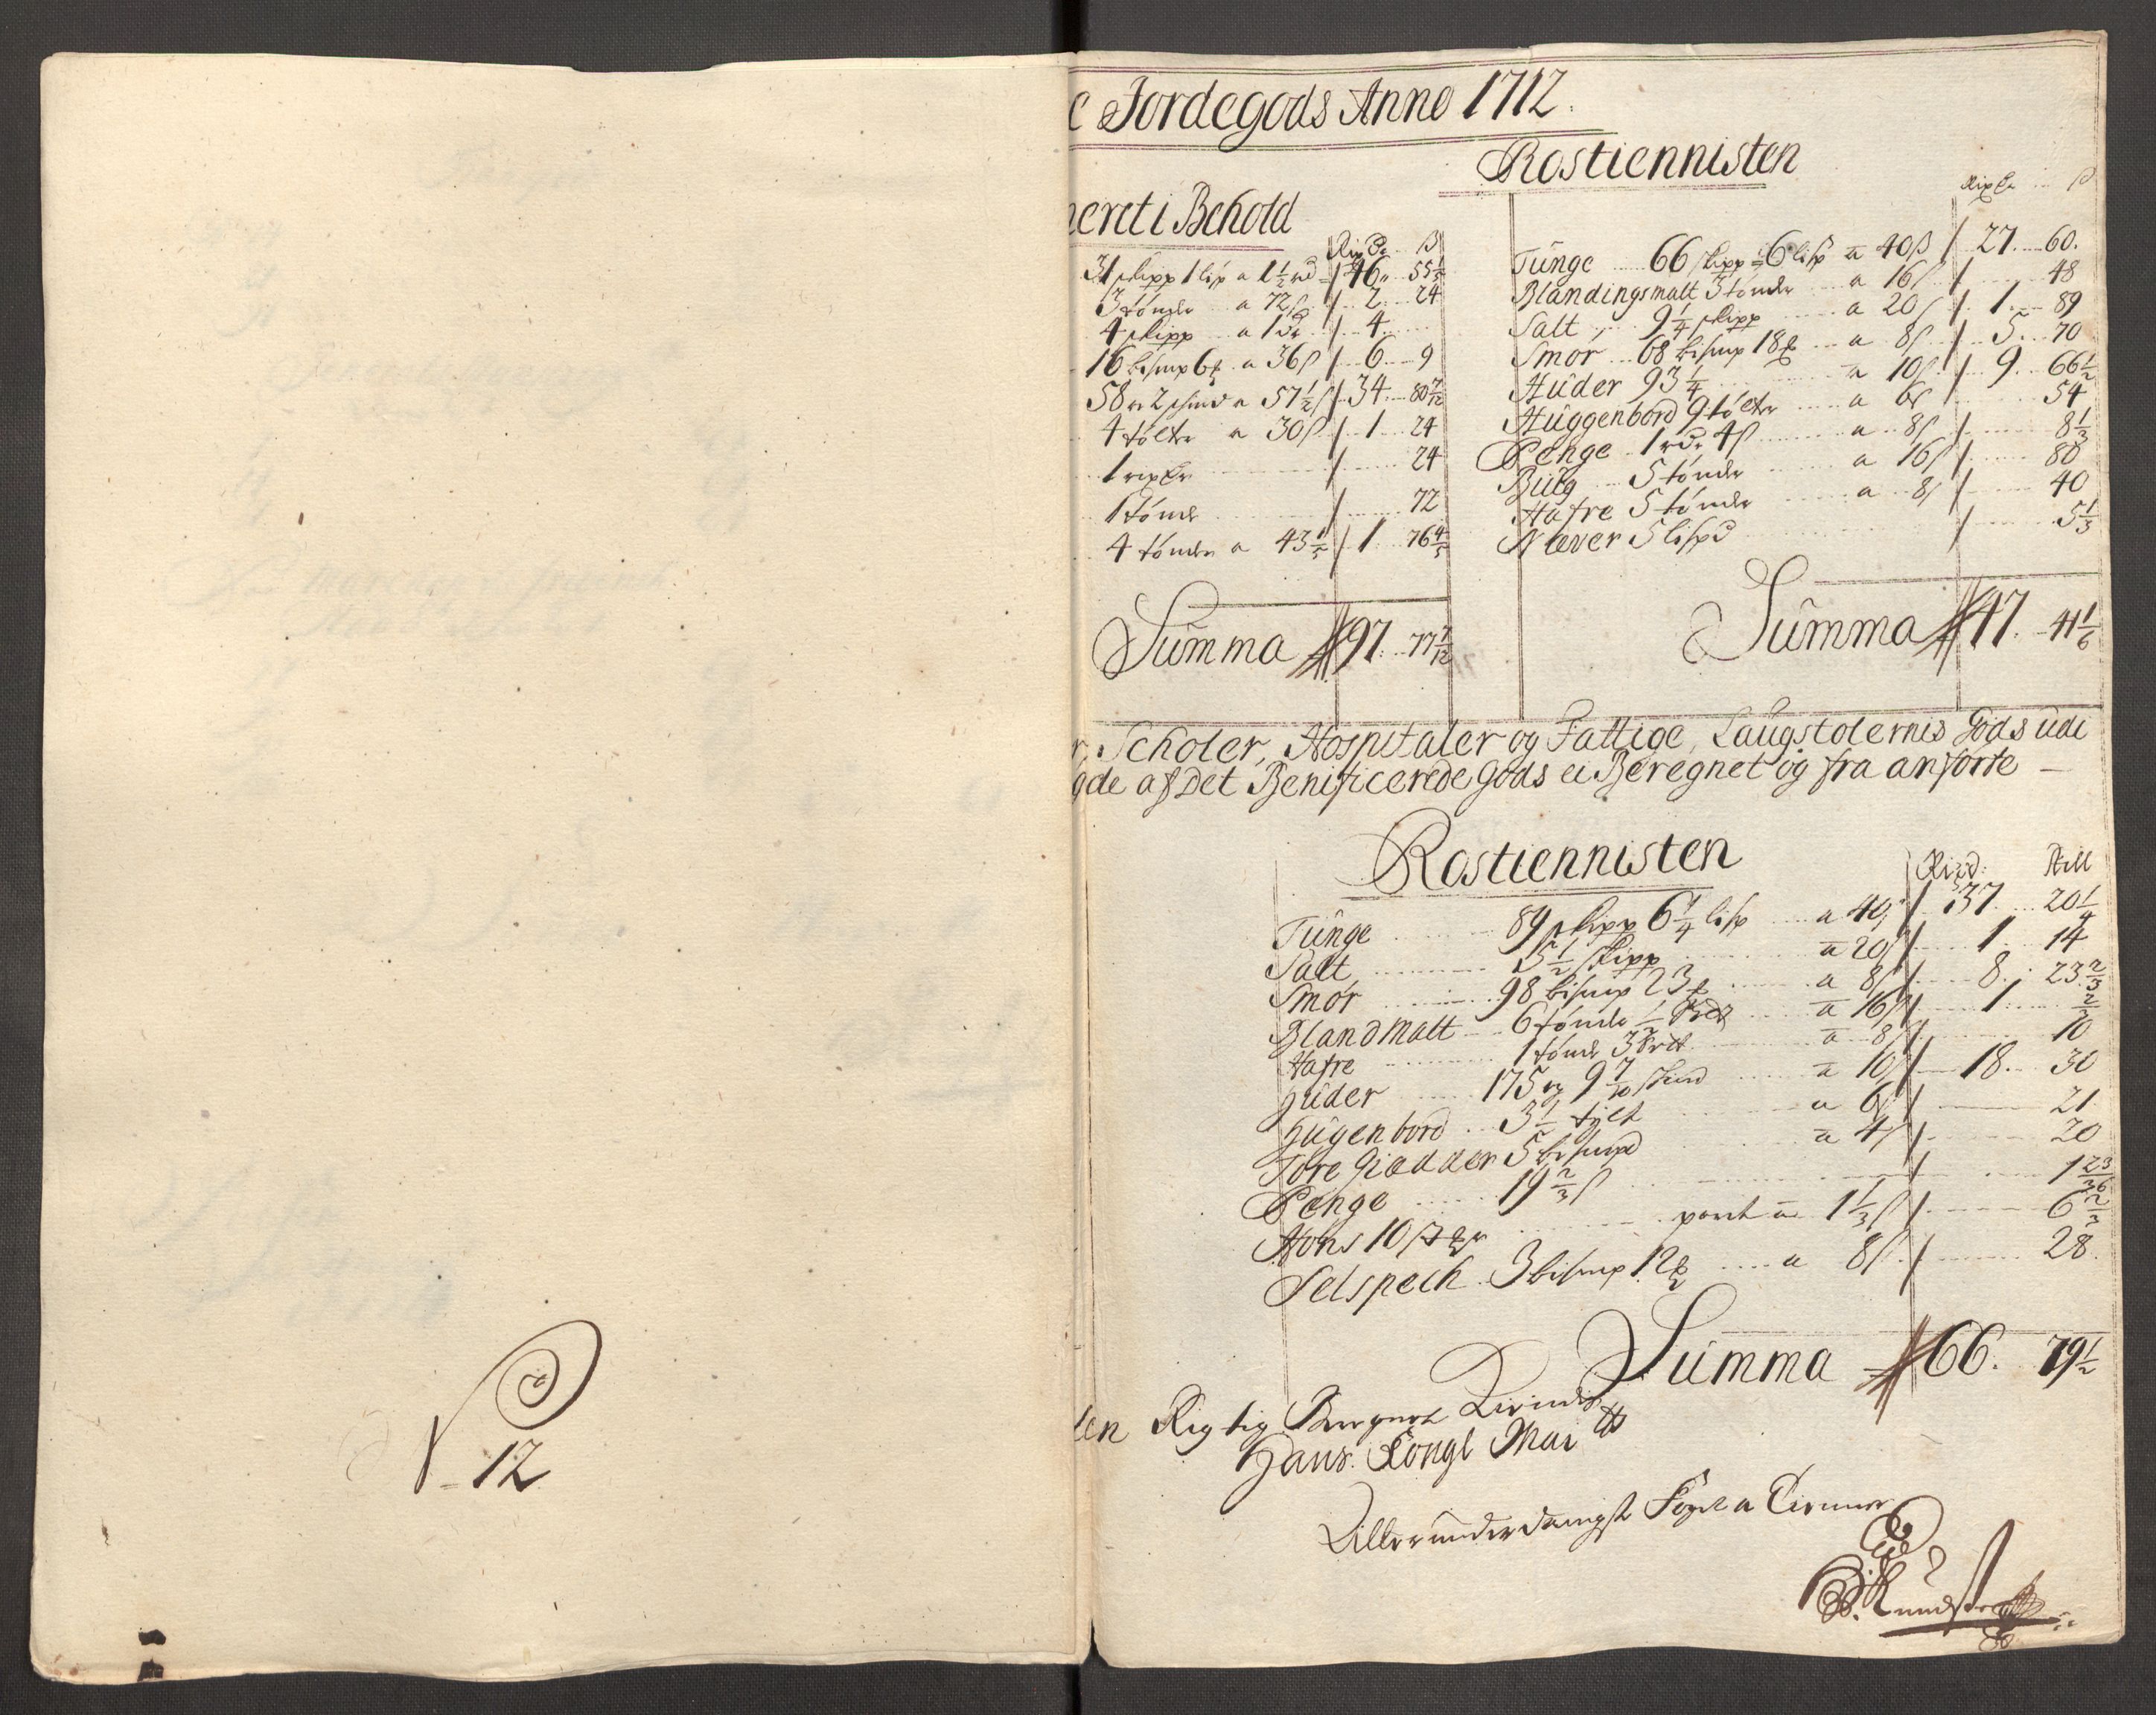 e Jordegods Anno 1712.
Rostiennisten
neret i Behold
31 skipp 1 lisp a 1½ rd 46 55⅕
3 tønder a 72ß 2 24
4 skipp a 1 dr 4
16 bismp 6 a 36ß 6 9
58 og 2 skind a 57½ß 34 80 7/12
4 tølter a 30ß 1 24
1 rixdr 24
1 tønde 72
4 tønder a 43⅕ 1 76⅘
Summa 97. 77 7/12
Rixdr ß
Tunge 66 skipp 6 lisp a 40ß 27. 60.
Blandingsmalt 3 tønder a 16ß 48
Salt 9¼ skipp a 20ß 1 89
Smør 68 bismp 18 a 8ß 5. 70
Huder 93¼ a 10ß 9. 66½
Huggenbord 9 tølter a 6ß 54
Penge 1 rdr 4ß a 8ß 8⅓
Büg 5 tønder a 16ß 80
Hafre 5 tønder a 8ß 40
Næver 5 lispd 5⅓
Summa 47. 41⅙
r, Scholer, Hospitaler og Fattige, Laugstolernis Gods udi
gde af Det Benificerede Gods ei Beregnet og fra anførte
Rostiennisten
Rixd: skill
Tunge 89 skipp 6¼ lisp a 40ß 37 20¼
Salt 5½ skipp a 20ß 1 14
Smør 98 bismp 23 a 8ß 8. 23⅔
Blandmalt 6 tønde a 16ß 1 ⅔
Hafre 1 tønde 3 a 8ß 10
Huder 175 og 9 7/10 skind a 10ß 18. 30
Hugenbord 3½ tylt a 6ß 21
Tøre Giedder 5 bismpd a 4ß 20
Penge 19⅔ß 1 23/36
Høns 10 1⅓ß 6⅔
Selspech 3 bismp 12 a 8ß 28
Summa 66. 79½
Rigtig
Hans Kongl Mai tts
Allerunderdanigst
12